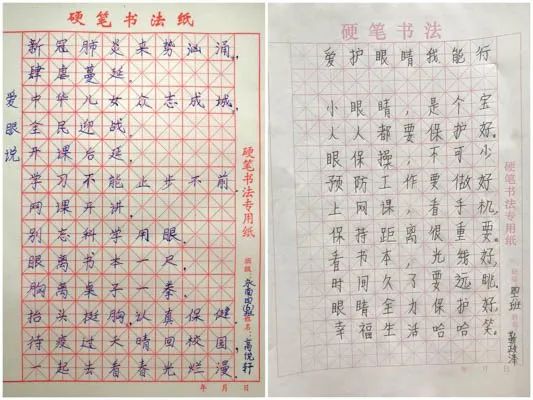 硬笔书法纸
爱眼说
新冠肺炎来势汹涌，
肆虐蔓延。
中华儿女众志成城，
全民迎战。
开课后延，
学习不能止步不前。
网课开讲，
别忘科学用眼。
眼离书本一尺，
胸离桌子一拳。
抬头挺胸，以真保健。
待疫过天晴回校园，
一起去看春光烂漫。
硬笔书法专用纸
班级
姓名：高悦轩
年 月 日
硬笔书法
爱护眼睛我能行
小眼睛，是个宝
人人都要保护好。
眼保操，不可少
预防工作要做好
上网课，看手机，
保持距离很重要。
看书本，光线好
时间久了要远眺，
眼睛全力保护好，
幸福生活哈哈笑。
硬笔书法专用纸
年 月 日